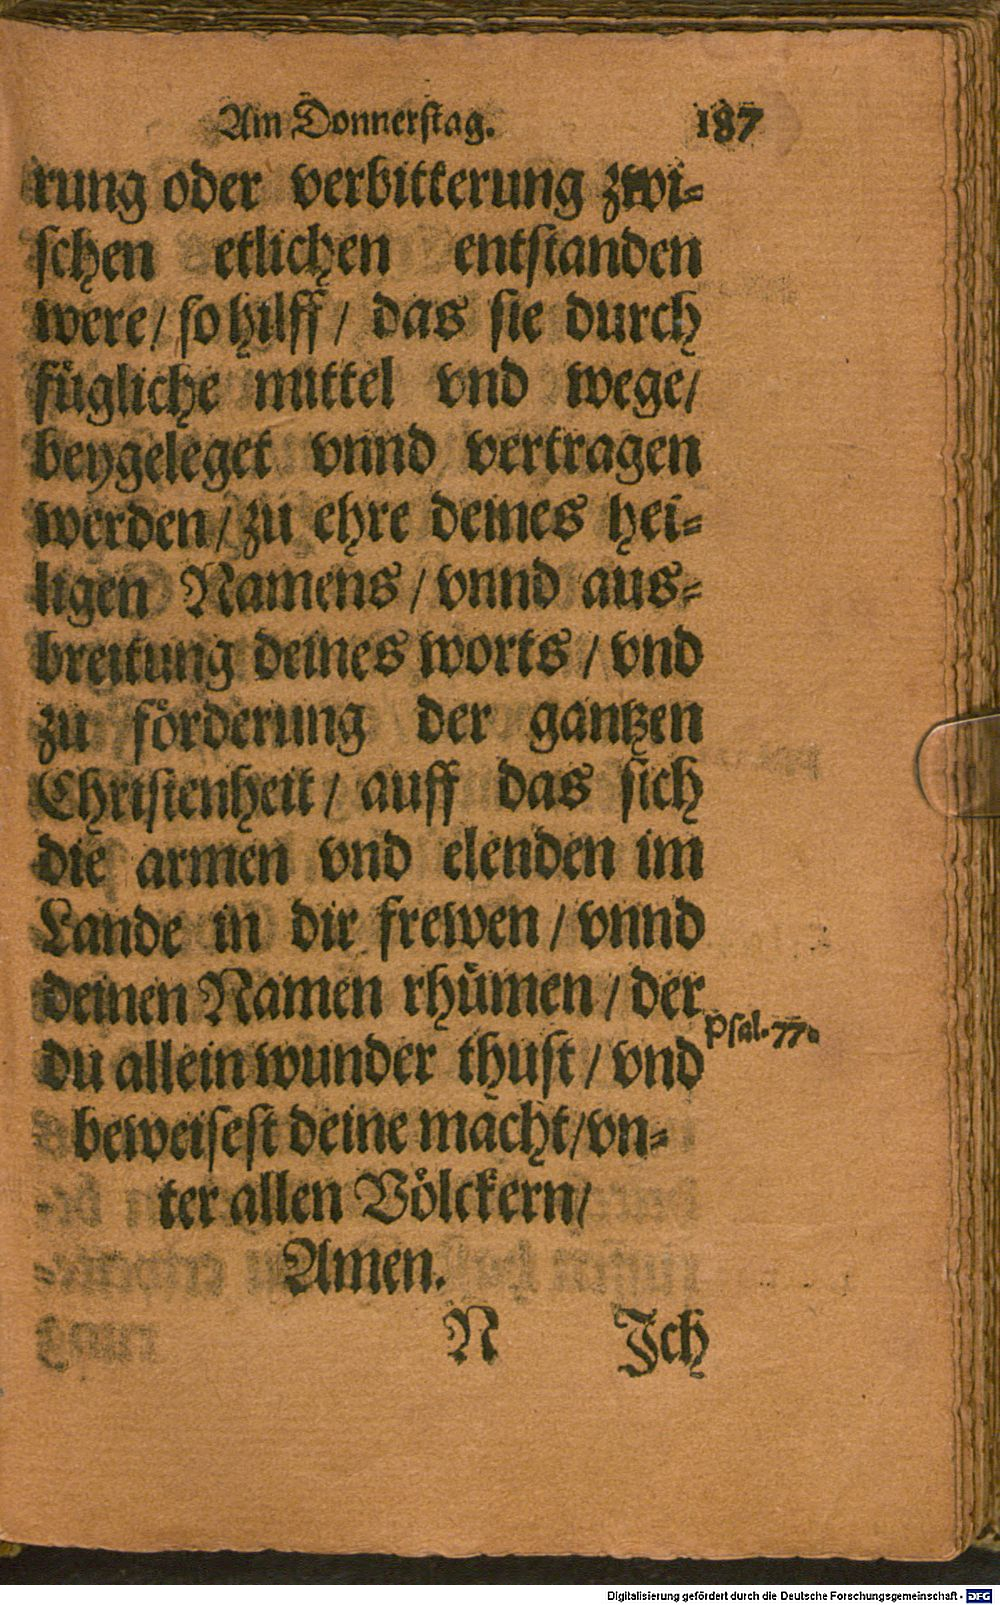 Am Donnerstag. 187
rung oder verbitterung zwi-
schen etlichen entstanden
were/ so hilff/ das sie durch
fügliche mittel vnd wege/
beygeleget vnnd vertragen
werden/ zu ehre deines hei-
ligen Namens/ vnnd aus-
breitung deines worts/ vnd
zu förderung der gantzen
Christenheit/ auff das sich
die armen vnd elenden im
Lande in dir frewen/ vnnd
deinen Namen rhümen/ der
Psal. 77.
du allein wunder thust/ vnd
beweisest deine macht/ vn-
ter allen Völckern/
Amen.
N Jch
Digitalisierung gefördert durch die Deutsche Forschungsgemeinschaft - DFG